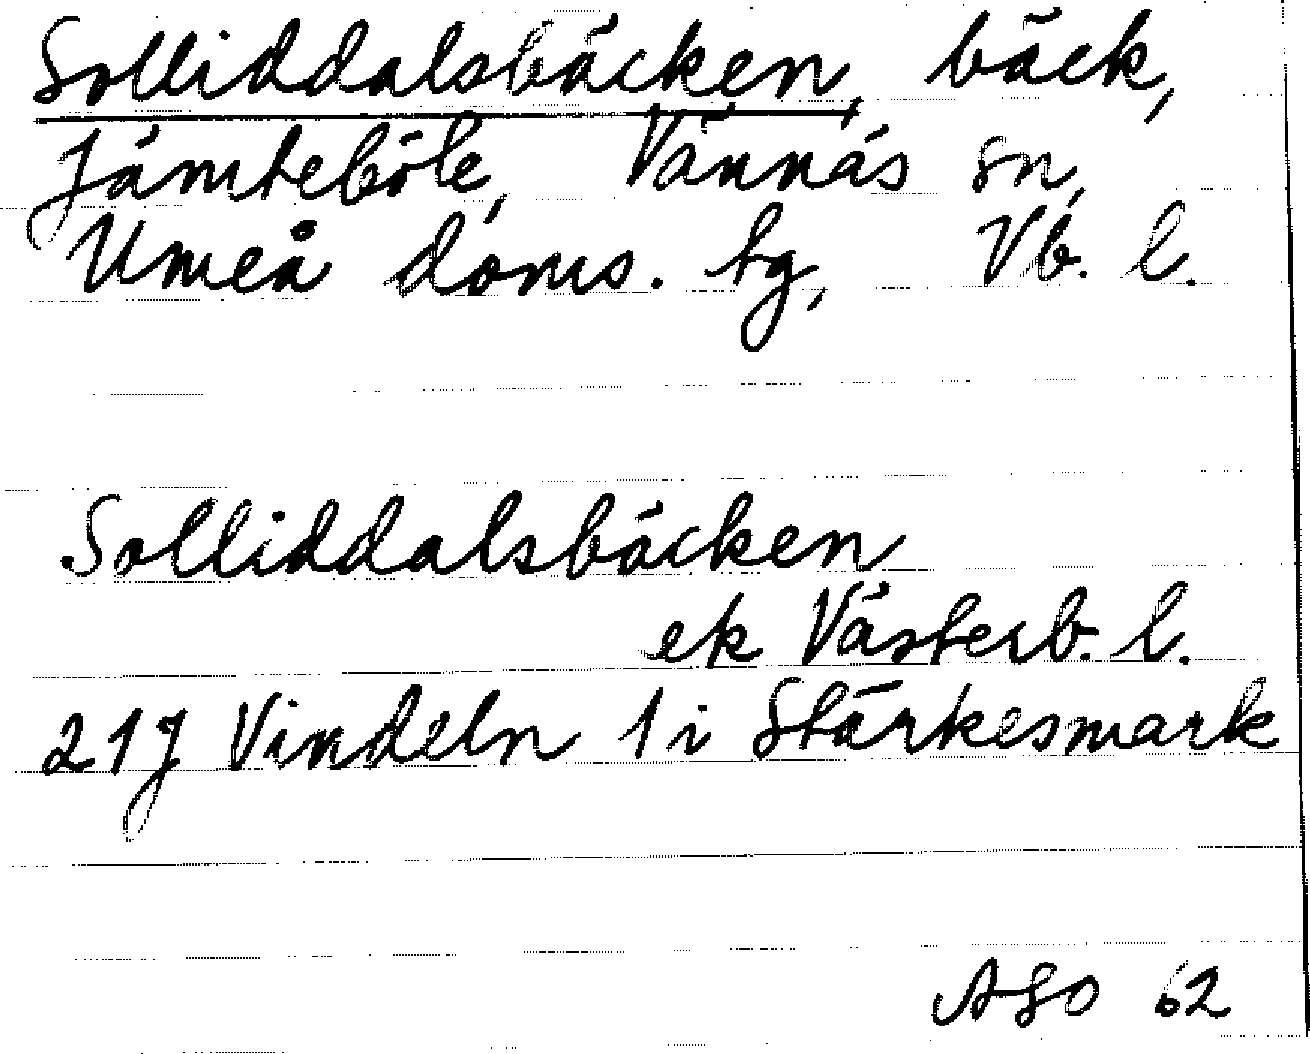 Solliddalsbäcken, bäck,
Jämteböle, Vännäs sn,
Umeå doms. tg, Vb. l.
Solliddalsbäcken
ek Västerb. l.
21J Vindeln 1 i Stärkesmark
ASO 62